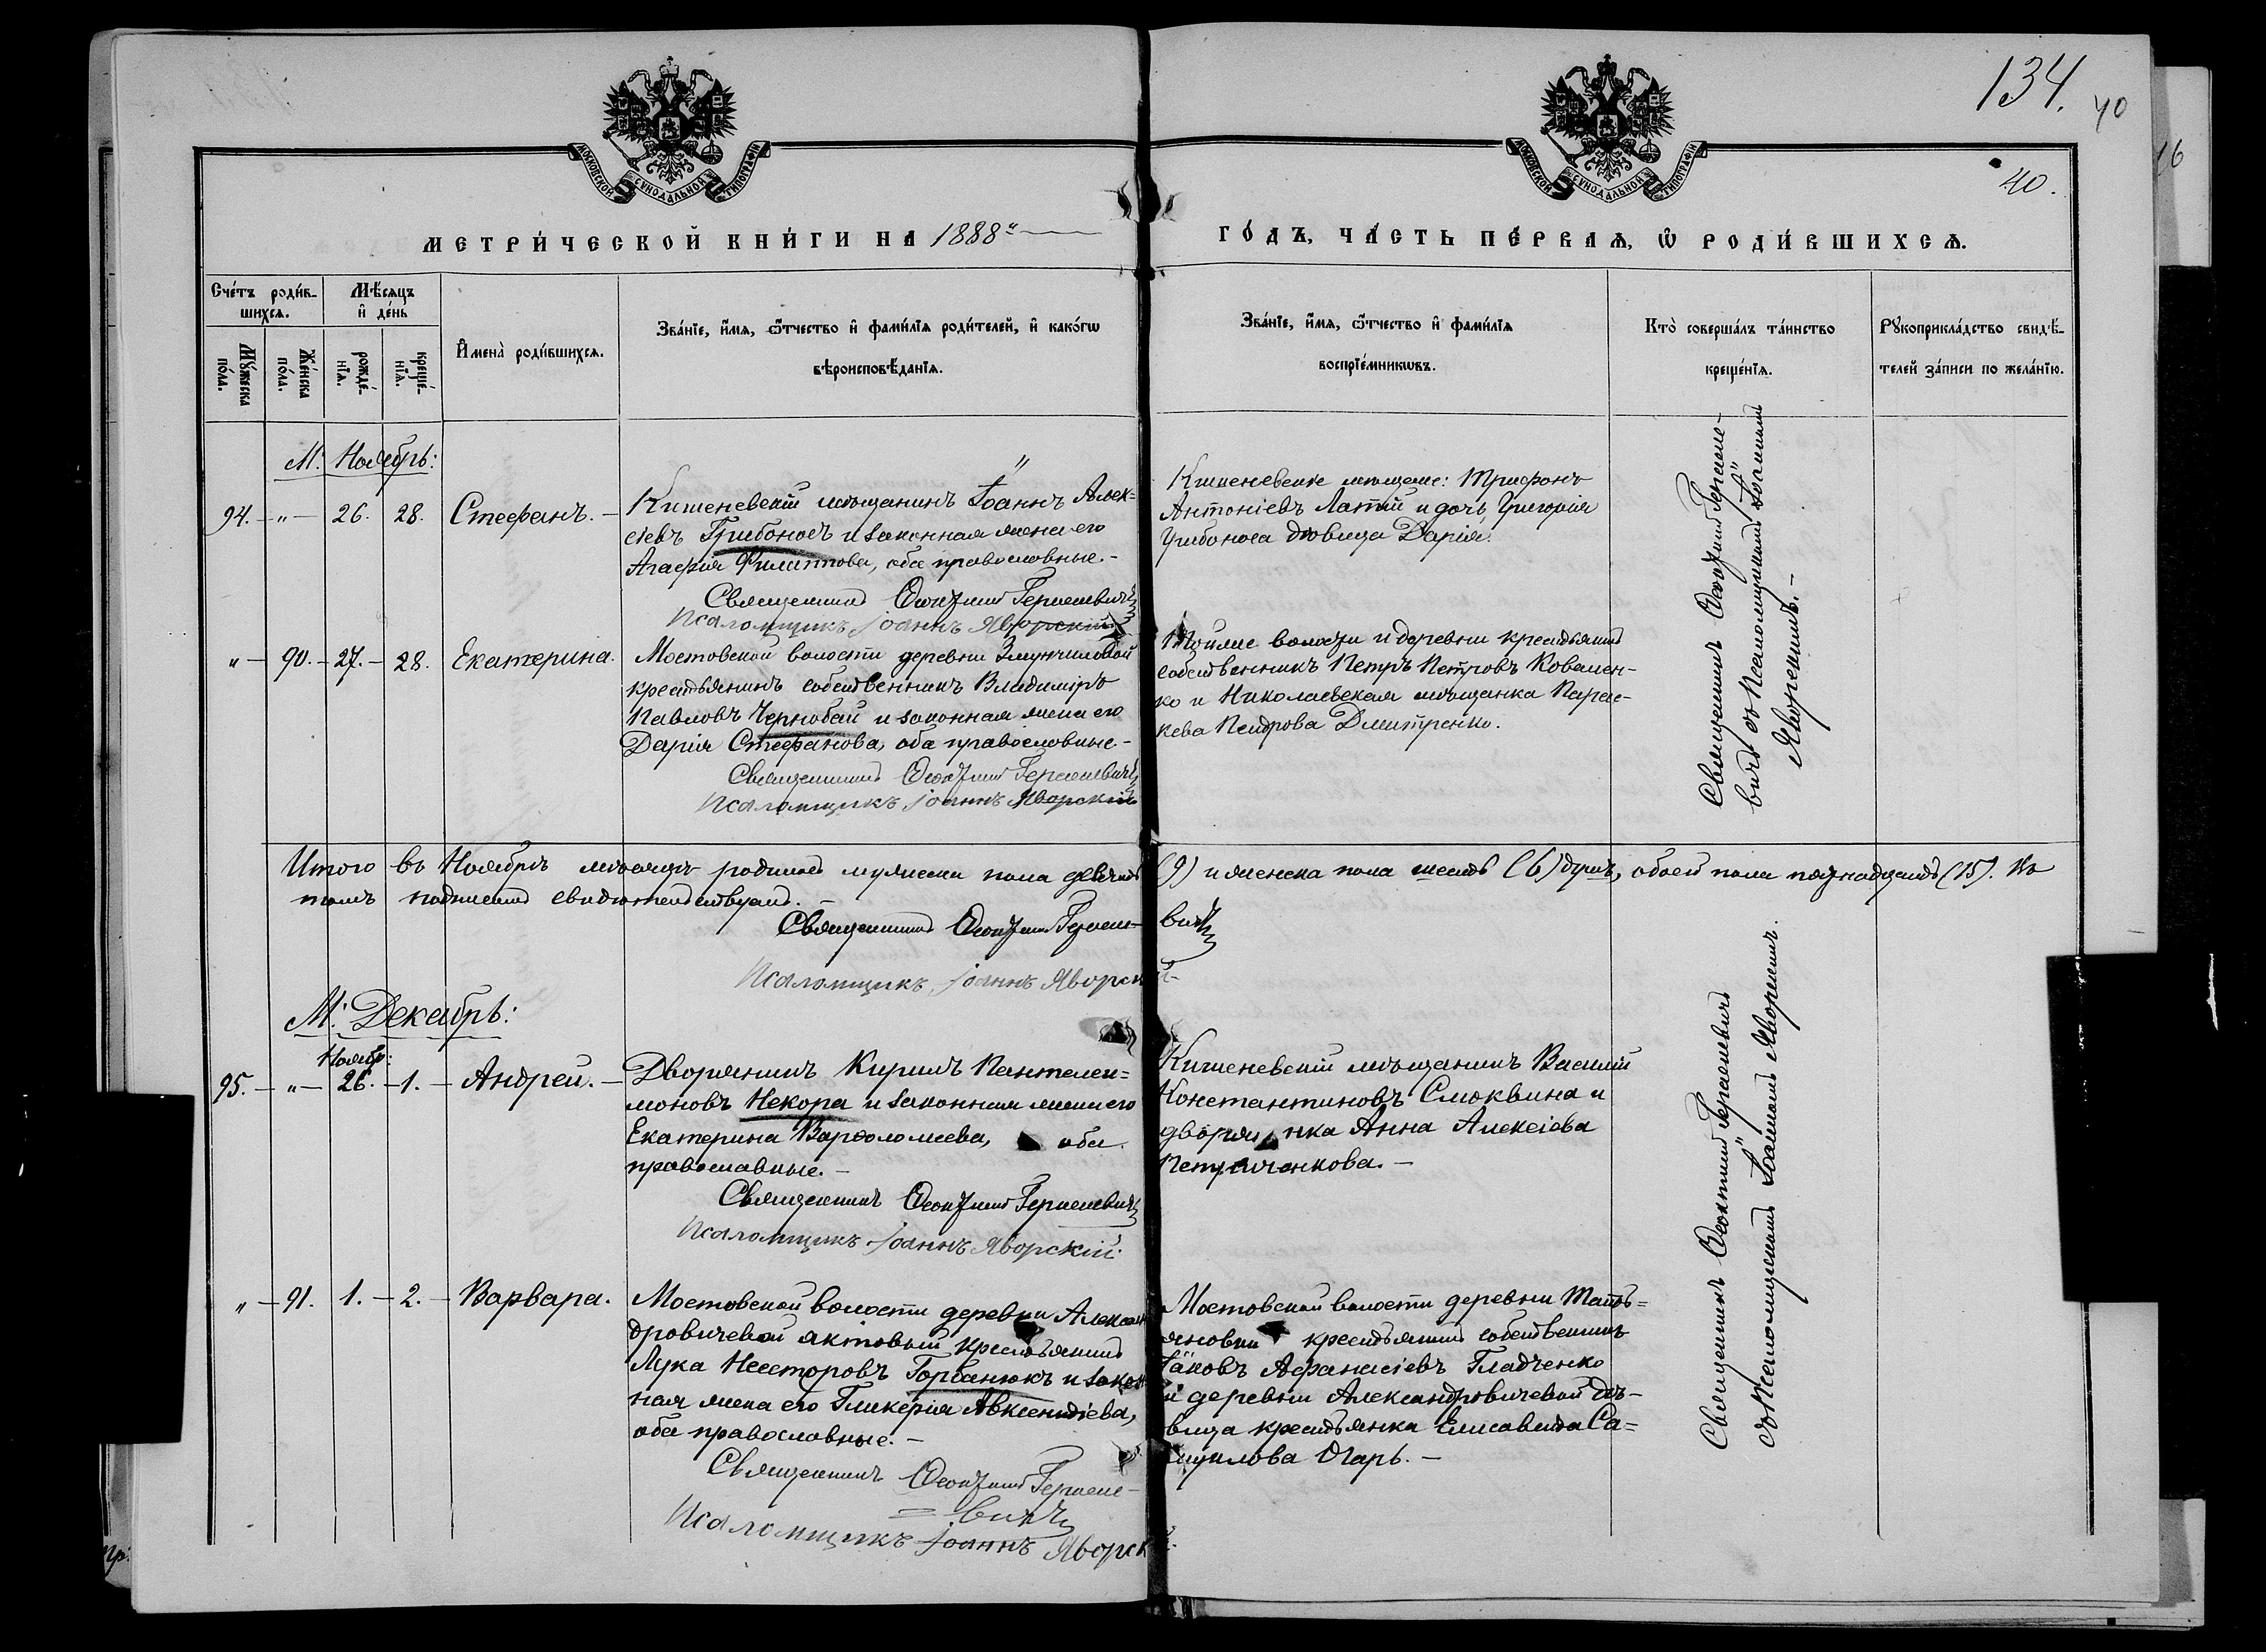 134.
40
16
40.
МОСКОВСКОЙ СУНОДАЛЬНОЙ ТИПОГРАФІИ
МОСКОВСКОЙ СУНОДАЛЬНОЙ ТИПОГРАФІИ
МЕТРИ́ЧЕСКОЙ КНИ́ГИ НА 1888й
ГО́ДЪ, ЧА́СТЬ ПЕ́РВАѦ, Ѡ РОДИ́ВШИХСѦ.
Сче́тъ роди́в-
шихсѧ.
Мѣ́сѧцъ
и҆ де́нь
Мꙋ́жеска
по́ла.
Же́нска
по́ла.
рожде́-
нїѧ.
креще́-
нїѧ.
И҆мена̀ роди́вшихсѧ.
Зва́нїе, и҆́мѧ, ѻ҆́тчество и҆ фамилїѧ роди́телей, и҆ како́гѡ
вѣроисповѣ́данїѧ.
Зва́нїе, и҆́мѧ, ѻ҆́тчество и҆ фами́лїѧ
воспрїе́мникѡвъ.
Кто̀ соверша́лъ та́инство
креще́нїѧ.
Рꙋкоприкла́дство свидѣ́-
телей за́писи по жела́нїю.
М: Ноябрь:
94. - „ - 26. 28. Стефанъ. -
Кишеневскій мѣщанинъ Іоаннъ Алек=
сіевъ Грибоносъ и законная жена его
Агафія Филиппова, оба православные. -
Священникъ Феоктист Гермашевичъ
Псаломщикъ Іоаннъ Яворскій
Кишеневскіе мѣщане: Трифонъ
Антоніевъ Латій и дочь Григорія
Грибоноса дѣвица Дарія.
Священникъ Феоктистъ Гермаше-
вичъ съ Псаломщикомъ Іоанномъ
Яворскимъ. -
„ - 90. - 27. - 28. Екатерина.
Мостовской волости деревни Змунчиловой
крестьянинъ собственникъ Владиміръ
Павловъ Чернобай и законная жена его
Дарія Стефанова, оба православные. -
Священникъ Феоктист Гермашевичъ
Псаломщикъ Іоаннъ Яворскій
Тойже волости и деревни крестьянинъ
собственникъ Петръ Петровъ Ковален-
ко и Николаевская мѣщанка Парас-
кева Петрова Дмитренко.
Итого въ Ноябрѣ мѣсяцѣ родилось мужеска пола девять (9) и женска пола шесть (6) душъ, обоего пола пятнадцать (15). Въ
томъ подписомъ свидѣтельствуемъ. -
Священникъ Феоктист Гермаше-вичъ
Псаломщикъ Іоаннъ Яворскій
М: Декабрь:
Ноябр:
95. - „ - 26. - 1. - Андрей. -
Дворянинъ Кирилъ Пантелеи=
моновъ Некора и законная жена его
Екатерина Варѳоломеева, оба
православные. -
Священникъ Феоктист Гермашевичъ
Псаломщикъ Іоаннъ Яворскій.
Кишеневскій мѣщанинъ Василій
Константиновъ Смоквина и
дворянка Анна Алексіева
Петриченкова. -
Священникъ Феоктистъ Гермашевичъ
съ Псаломщикомъ Іоанномъ Яворскимъ.
„ - 91. 1. - 2. - Варвара.
Мостовской волости деревни Алексан
дровичевой актовый крестьянинъ
Лука Несторовъ Горбанюкъ и закон
ная жена его Гликерія Авксентіева,
оба православные. -
Священникъ Феоктист Гермаше-
= вичъ
Псаломщикъ Іоаннъ Яворскій.
Мостовской волости деревни Тать=
яновки крестьянинъ собственникъ
Іаковъ Афанасіевъ Гладченко
и деревни Александровичевой дѣ-
вица крестьянка Елисавета Са=
муилова Огарь. -